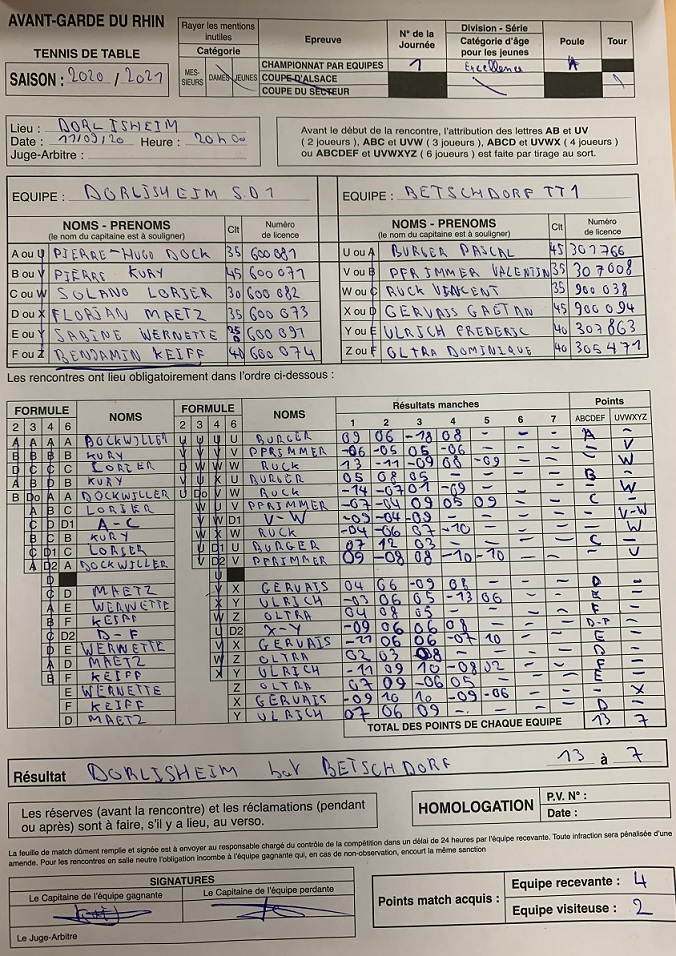 AVANT-GARDE DU RHIN
TENNIS DE TABLE
SAISON : 2020 / 2021
Rayer les mentions inutiles
Catégorie
MES-SIEURS DAMES JEUNES
Epreuve
N° de la Journée
Division - Série
Catégorie d'âge pour les jeunes
Poule
Tour
CHAMPIONNAT PAR EQUIPES 1 Excellence A
COUPE D'ALSACE
COUPE DU SECTEUR
Lieu : DORLISHEIM
Date : 11/09/20 Heure : 20h00
Juge-Arbitre :
Avant le début de la rencontre, l'attribution des lettres AB et UV
( 2 joueurs ), ABC et UVW ( 3 joueurs ), ABCD et UVWX ( 4 joueurs )
ou ABCDEF et UVWXYZ ( 6 joueurs ) est faite par tirage au sort.
EQUIPE : DORLISHEIM S.D 1
EQUIPE : BETSCHDORF TT1
NOMS - PRENOMS (le nom du capitaine est à souligner) Clt Numéro de licence
NOMS - PRENOMS (le nom du capitaine est à souligner) Clt Numéro de licence
A ou U PIERRE-HUGO DOCK 35 600081
U ou A BURGER PASCAL 45 301766
B ou V PIERRE KURY 45 600071
V ou B PFRIMMER VALENTIN 35 307008
C ou W SOLANO LORIER 30 600082
W ou C RUCK VINCENT 35 900038
D ou X FLORIAN MAETZ 35 600073
X ou D GERVAIS GAETAN 45 900094
E ou Y SABINE WERNETTE 600091
Y ou E ULRICH FREDERIC 40 307863
F ou Z BENJAMIN KEIFF 40 600074
Z ou F OLTRA DOMINIQUE 40 305471
Les rencontres ont lieu obligatoirement dans l'ordre ci-dessous :
FORMULE NOMS FORMULE NOMS Résultats manches Points
2 3 4 6 2 3 4 6 1 2 3 4 5 6 7 ABCDEF UVWXYZ
A DOCKWILLER U BURGER 09 06 -18 08 - - - A -
B KURY V PFRIMMER -06 -05 -05 -06 - - - - V
C LORIER W RUCK 13 -11 -09 08 -09 - - - W
B KURY U BURGER 05 08 05 - - - - B -
A DOCKWILLER W RUCK -14 -07 01 -09 - - - - W
C LORIER V PFRIMMER -07 -04 09 05 09 - - C -
D1 A-C D1 V-W -09 -04 -09 - - - - - V-W
B KURY W RUCK -04 -06 07 -10 - - - - W
C LORIER U BURGER 07 12 03 - - - - C -
A DOCKWILLER V PFRIMMER 09 -08 08 -10 -10 - - - V
D MAETZ X GERVAIS 04 06 -09 08 - - - D -
E WERNETTE Y ULRICH -03 06 05 -13 06 - - E -
F KEIFF Z OLTRA 04 08 05 - - - - F -
D2 D-F D2 X-Y -09 06 06 08 - - - D-F -
E WERNETTE X GERVAIS -11 06 06 -07 10 - - E -
D MAETZ Z OLTRA 02 03 08 - - - - D -
F KEIFF Y ULRICH -11 09 10 -08 02 - - F -
E WERNETTE Z OLTRA 07 09 -06 05 - - - E -
F KEIFF X GERVAIS -09 10 10 -09 -06 - - - X
D MAETZ Y ULRICH 07 06 09 - - - - D -
TOTAL DES POINTS DE CHAQUE EQUIPE 13 7
Résultat DORLISHEIM bat BETSCHDORF 13 à 7
Les réserves (avant la rencontre) et les réclamations (pendant
ou après) sont à faire, s'il y a lieu, au verso.
HOMOLOGATION
P.V. N° :
Date :
La feuille de match dûment remplie et signée est à envoyer au responsable chargé du contrôle de la compétition dans un délai de 24 heures par l'équipe recevante. Toute infraction sera pénalisée d'une
amende. Pour les rencontres en salle neutre l'obligation incombe à l'équipe gagnante qui, en cas de non-observation, encourt la même sanction
SIGNATURES
Le Capitaine de l'équipe gagnante
Le Capitaine de l'équipe perdante
Le Juge-Arbitre
Points match acquis :
Equipe recevante : 4
Equipe visiteuse : 2